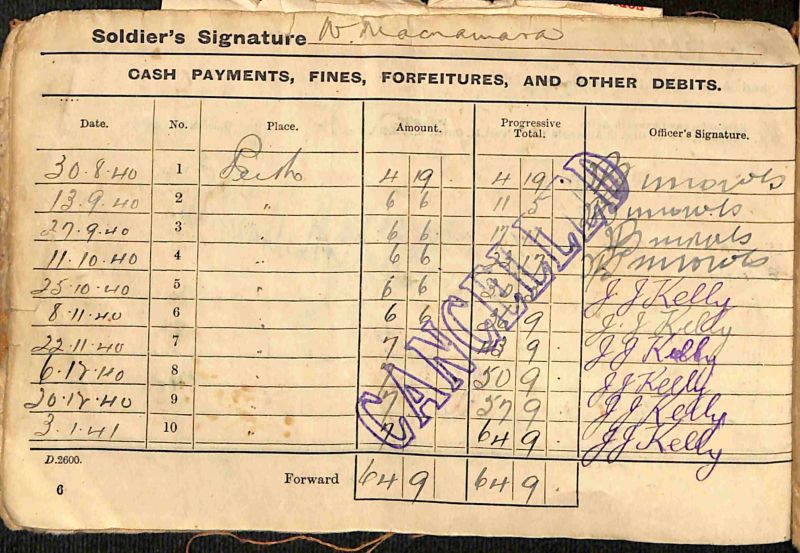 Soldier's Signature W. Macnamara
CASH PAYMENTS, FINES, FORFEITURES, AND OTHER DEBITS.
Date. No. Place. Amount. Progressive Total. Officer's Signature.
30.8.40 1 4 19 4 19
13.9.40 2 " 6 6 11 5
27.9.40 3 " 6 6 17 11
11.10.40 4 " 6 6
25.10.40 5 " 6 6 J J Kelly
8.11.40 6 " 6 6 36 9 J. J Kelly
22.11.40 7 " 7 43 9 J J Kelly
6.12.40 8 " 7 50 9 J J Kelly
20.12.40 9 " 7 57 9 J J Kelly
3.1.41 10 " 7 64 9 J J Kelly
CANCELLED
D.2600.
Forward 64 9 64 9
6